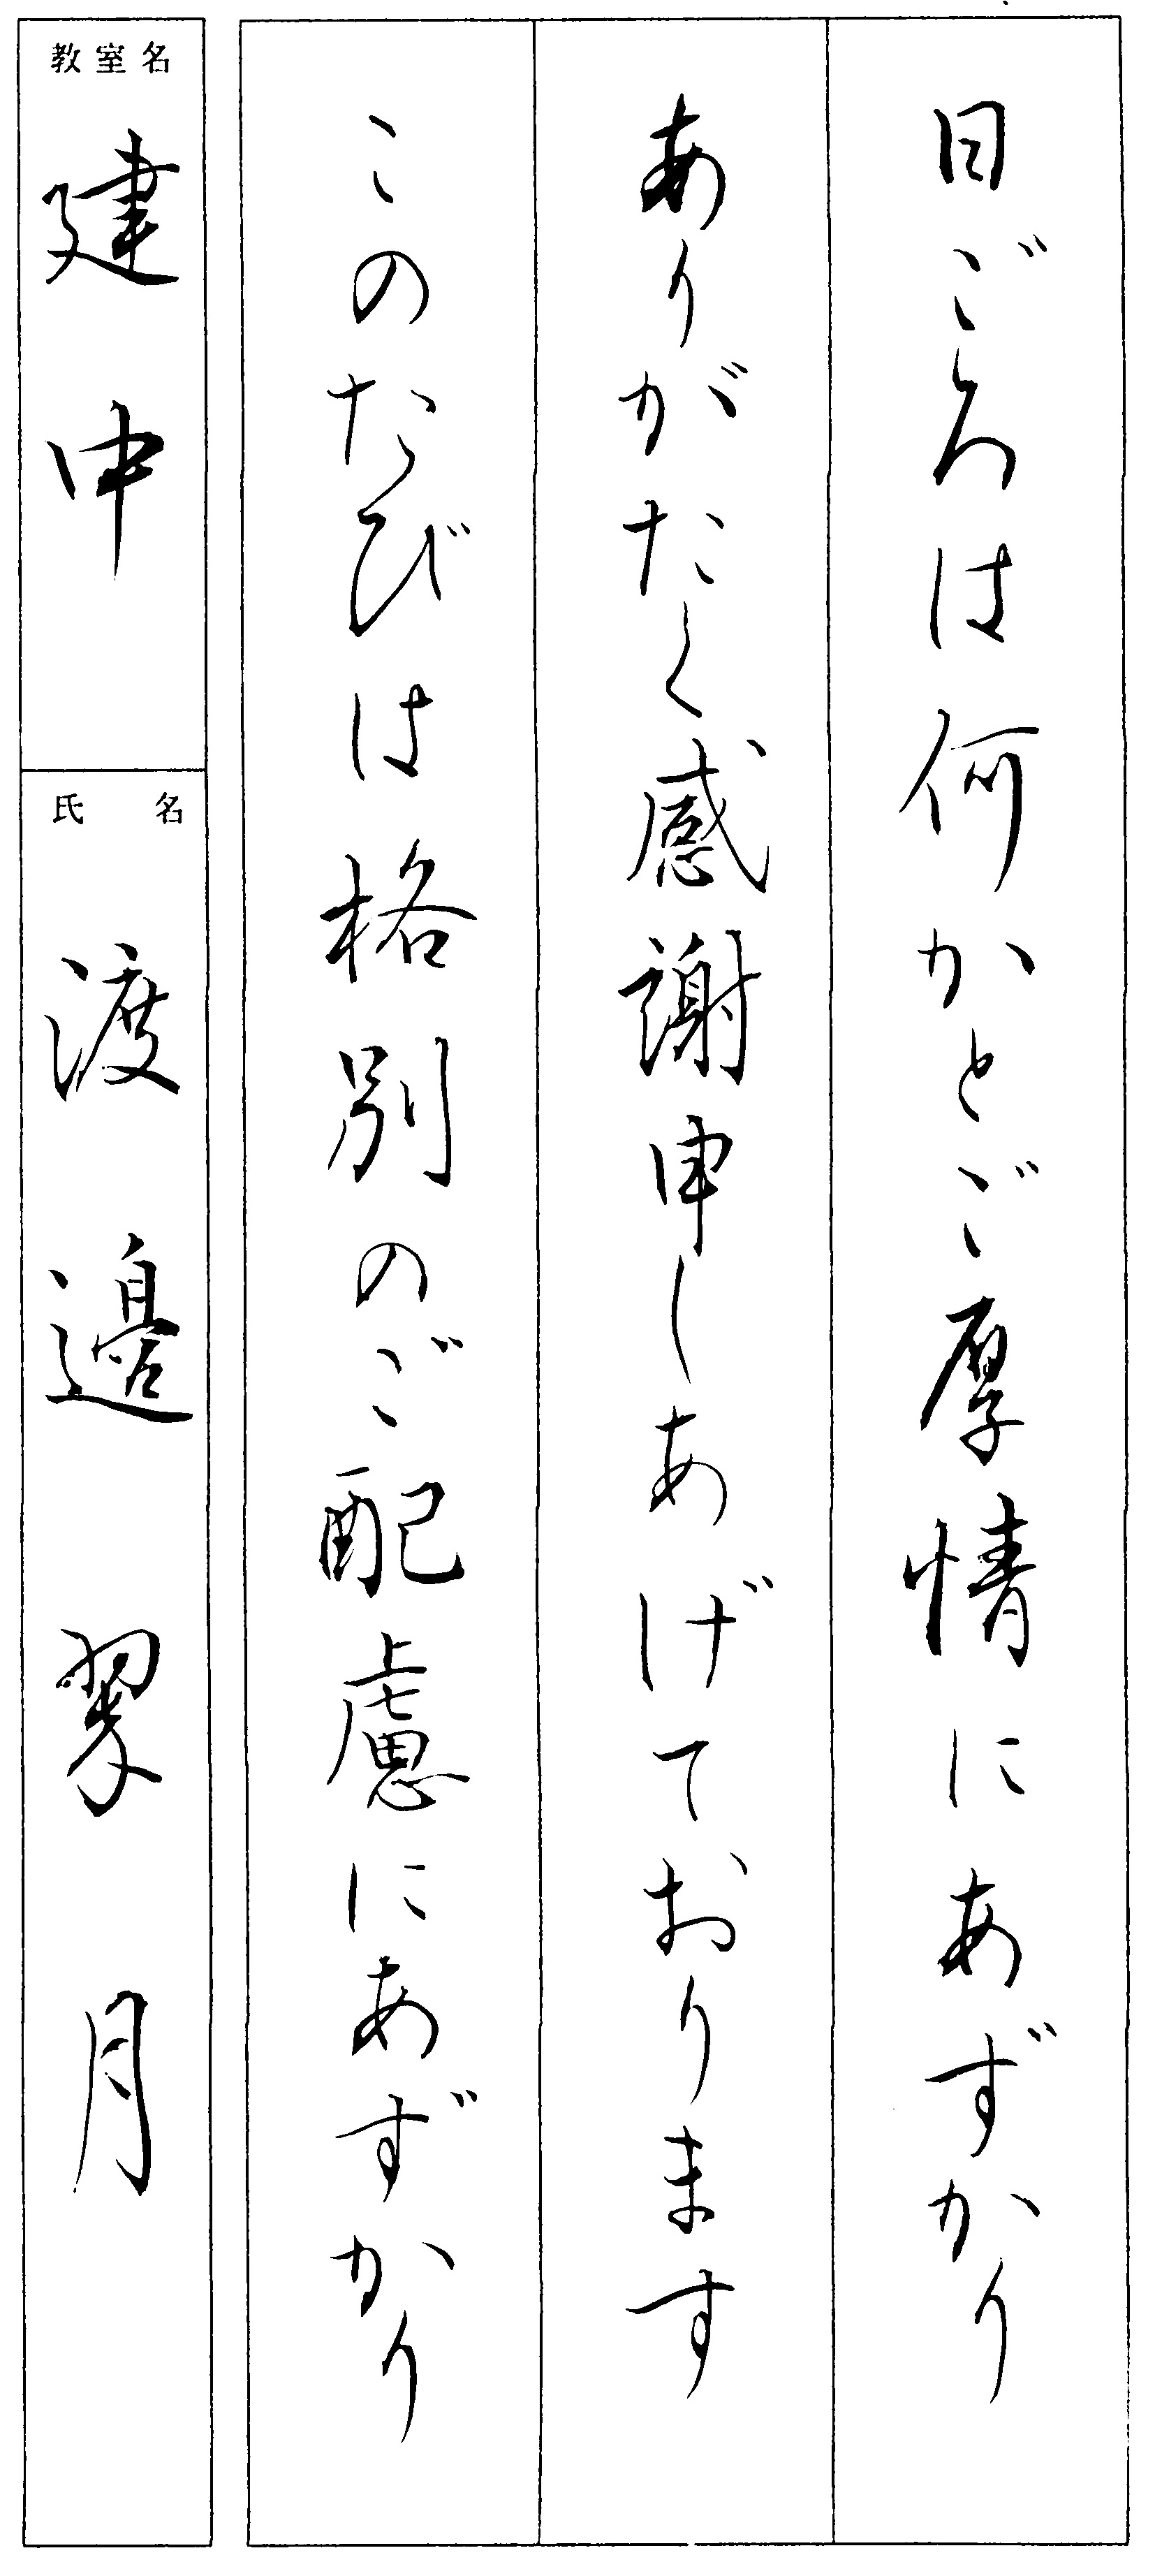 日ごろは何かとご厚情にあずかり
ありがたく感謝申しあげております
このたびは格別のご配慮にあずかり
教室名
建申
氏名
渡邉翠月